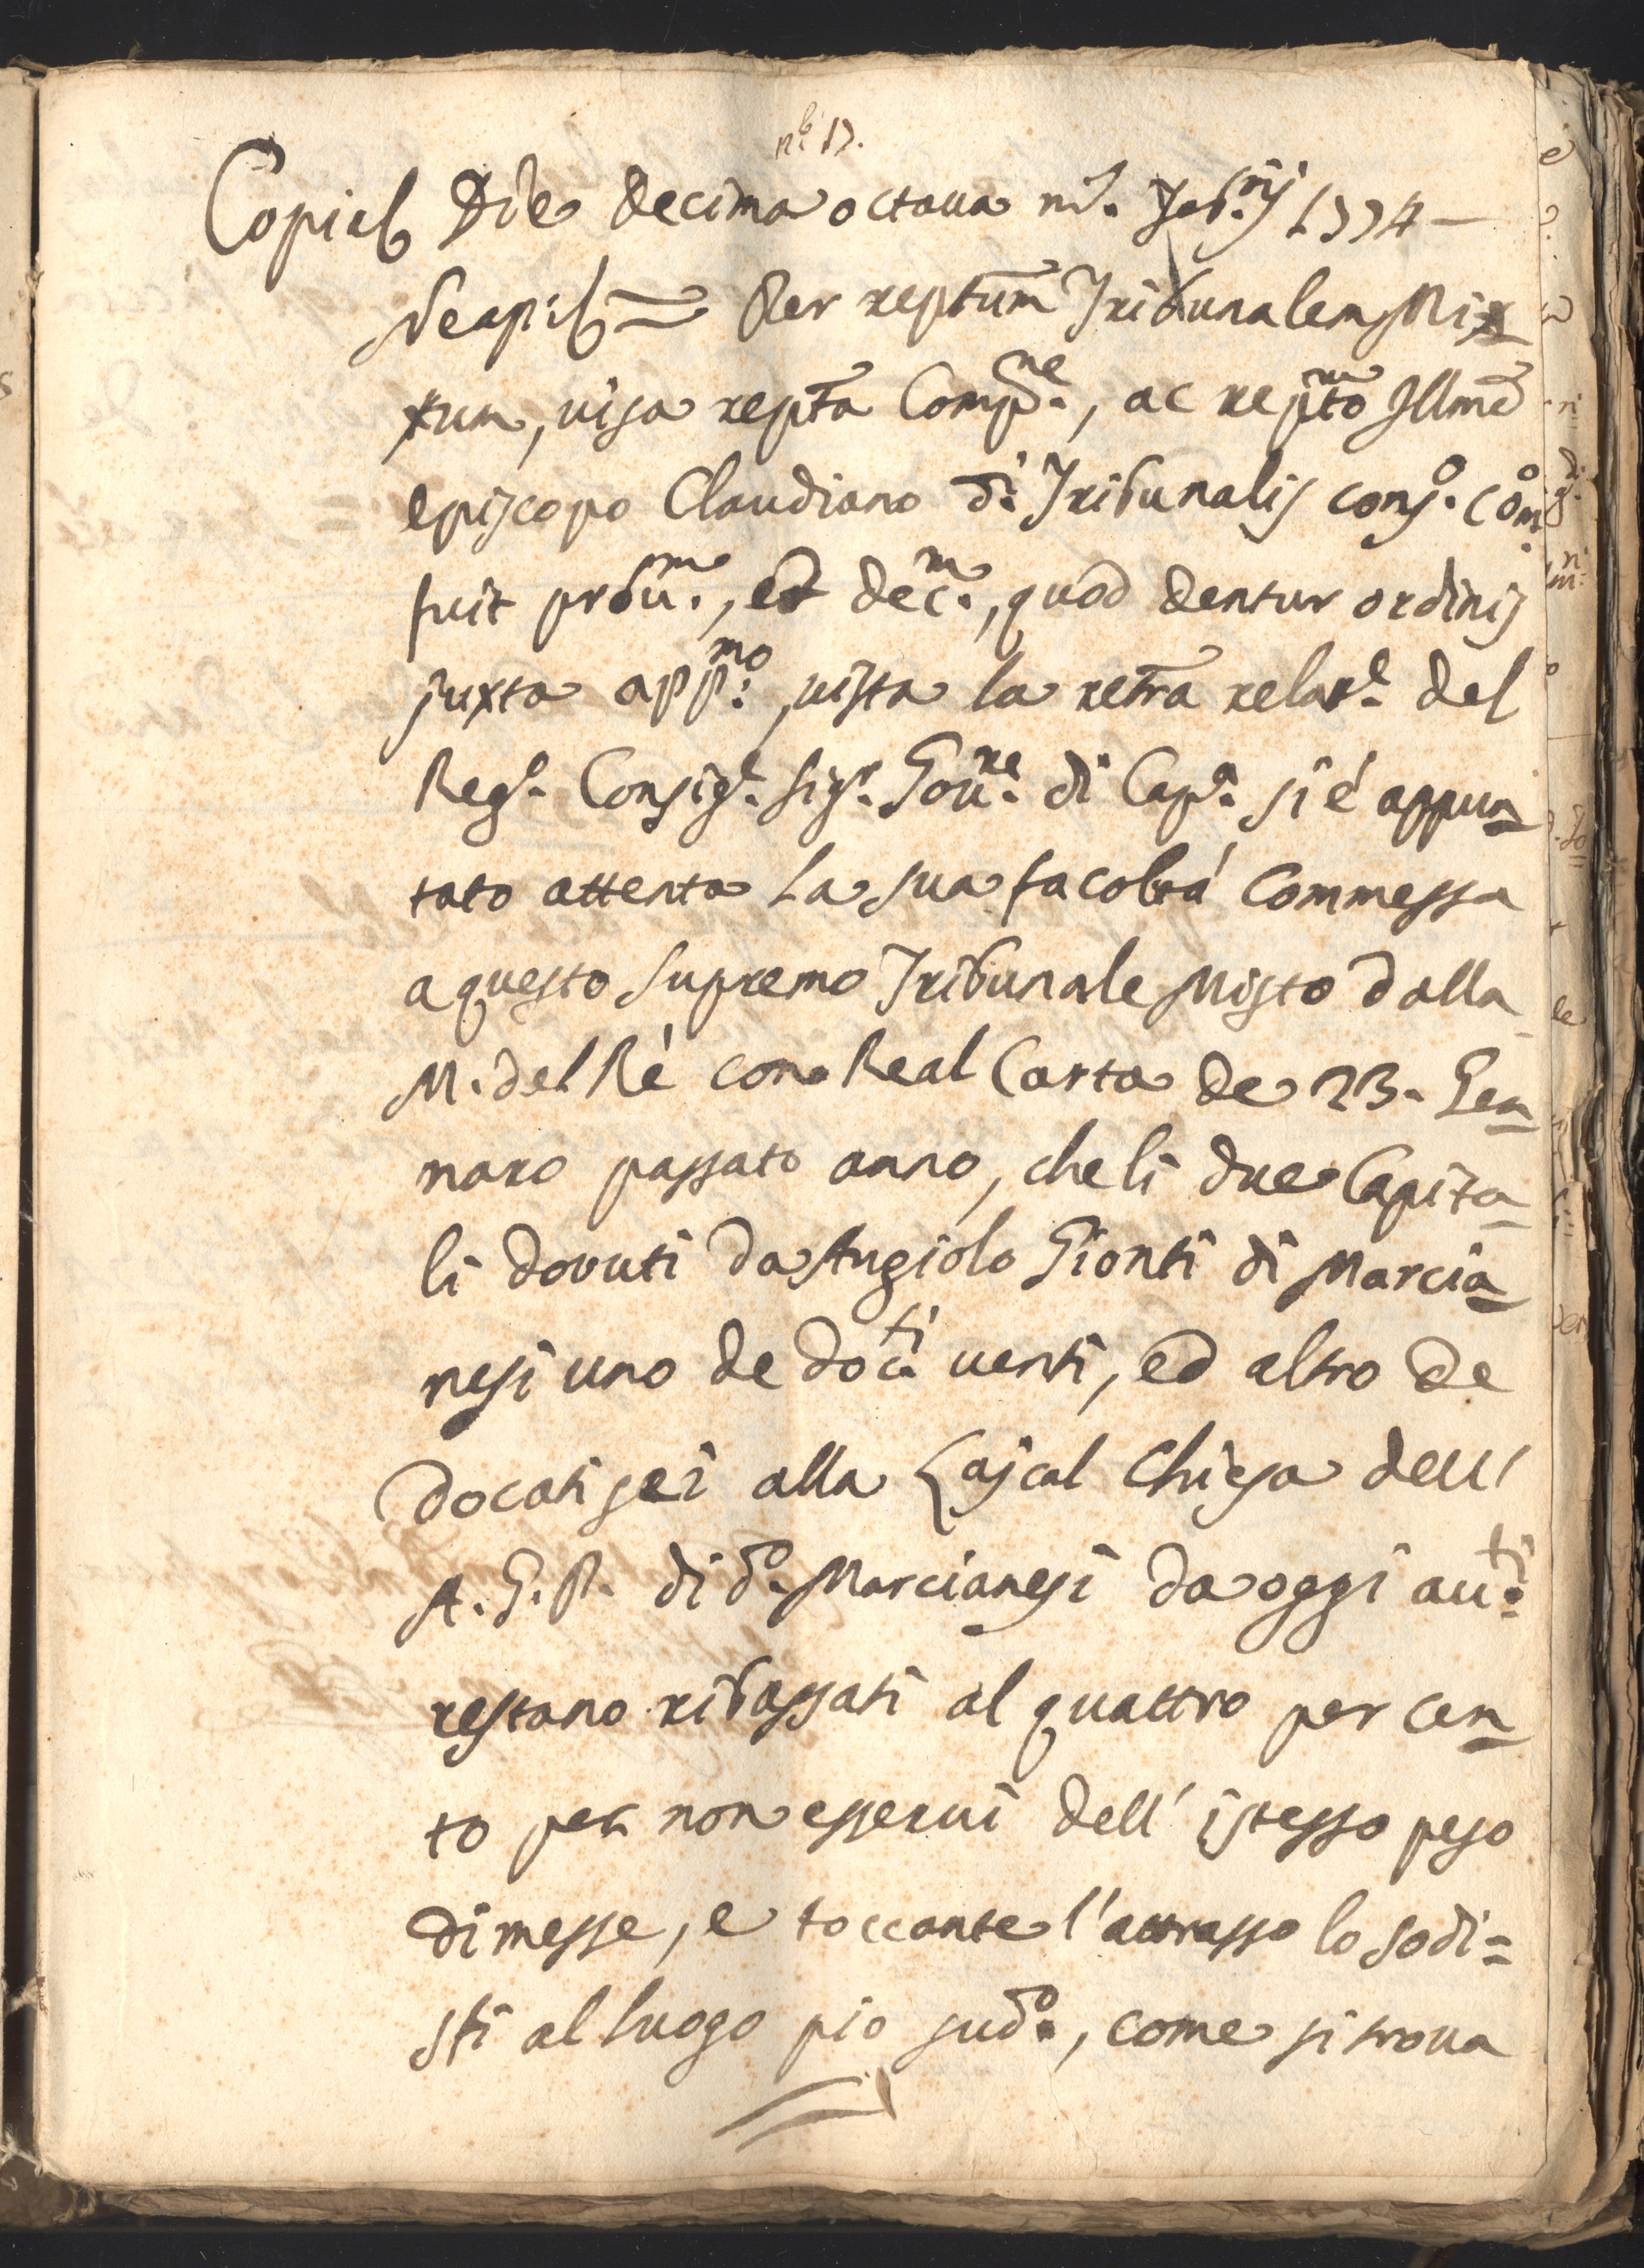 nº 17.
Copia Die decima octava m.s Feb.rij 1774 —
Neap: = Per rept̄um Tribunalem Mix
xtum, visa rept̄a Comp.ne, ac rep̄to Illmō
episcopo Claudiano d.i Tribunalis cons.o Com
fuit prōu.m, et dec.m, quod dentur ordinis
juxta app.mo, vista la ret̄ra relaz.e del
Reg.o Consig.e Sig.r Gou.re di Cap.a si é appun
tato attenta la sua facoltá Commessa
a questo Supremo Tribunale Misto dalla
M. del Rè con Real Carta de 23. Gen
naro passato anno, che li due Capita
li dovuti da Angiolo Gionti di Marcia
nesi uno de doc.ti venti, ed altro de
docati sei alla Lajcal Chiesa dell'
A. G. P. di d.o Marcianesi da oggi au.ti
restano ribassati al quattro per cen
to per non esservi dell' istesso peso
di messe, e toccante l'attrasso lo sodi=
sti al luogo pio sud.o, come si trova